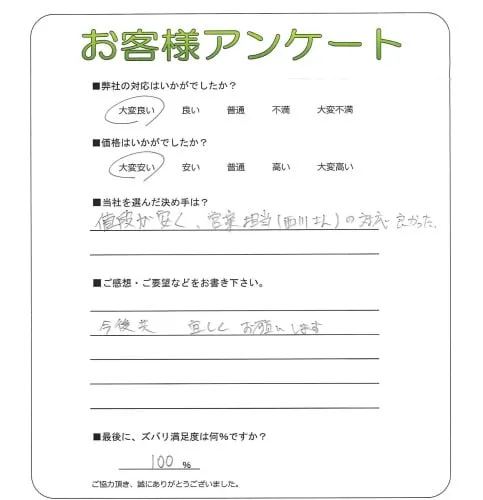 お客様アンケート
■弊社の対応はいかがでしたか?
大変良い 良い 普通 不満 大変不満
■価格はいかがでしたか?
大変安い 安い 普通 高い 大変高い
■当社を選んだ決め手は?
値段が安く、営業担当(西川さん)の対応が良かった。
■ご感想・ご要望などをお書き下さい。
今後共 宜しくお願いします
■最後に、ズバリ満足度は何%ですか?
100 %
ご協力頂き、誠にありがとうございました。